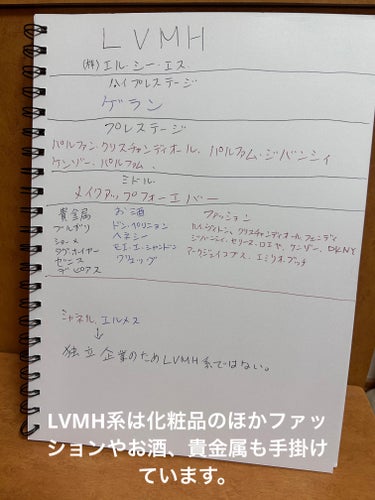 LVMH
(株) エル・シー・エス
ハイプレステージ
ゲラン
プレステージ
パルファン・クリスチャンディオール、パルファム・ジバンシイ
ケンゾー・パルファム、
ミドル
メイクアップフォーエバー
貴金属 お酒 ファッション
ブルガリ ドン・ペリニョン ルイ・ヴィトン、クリスチャンディオール、フェンディ
ショーメ ヘネシー ジバンシィ、セリーヌ、ロエベ、ケンゾー、DKNY
タグホイヤー モエ・エ・シャンドン マークジェイコブス、エミリオプッチ
ゼニス クリュッグ
デビアス
シャネル、エルメス
↓
独立企業のためLVMH系ではない。
LVMH系は化粧品のほかファッ
ションやお酒、貴金属も手掛け
ています。